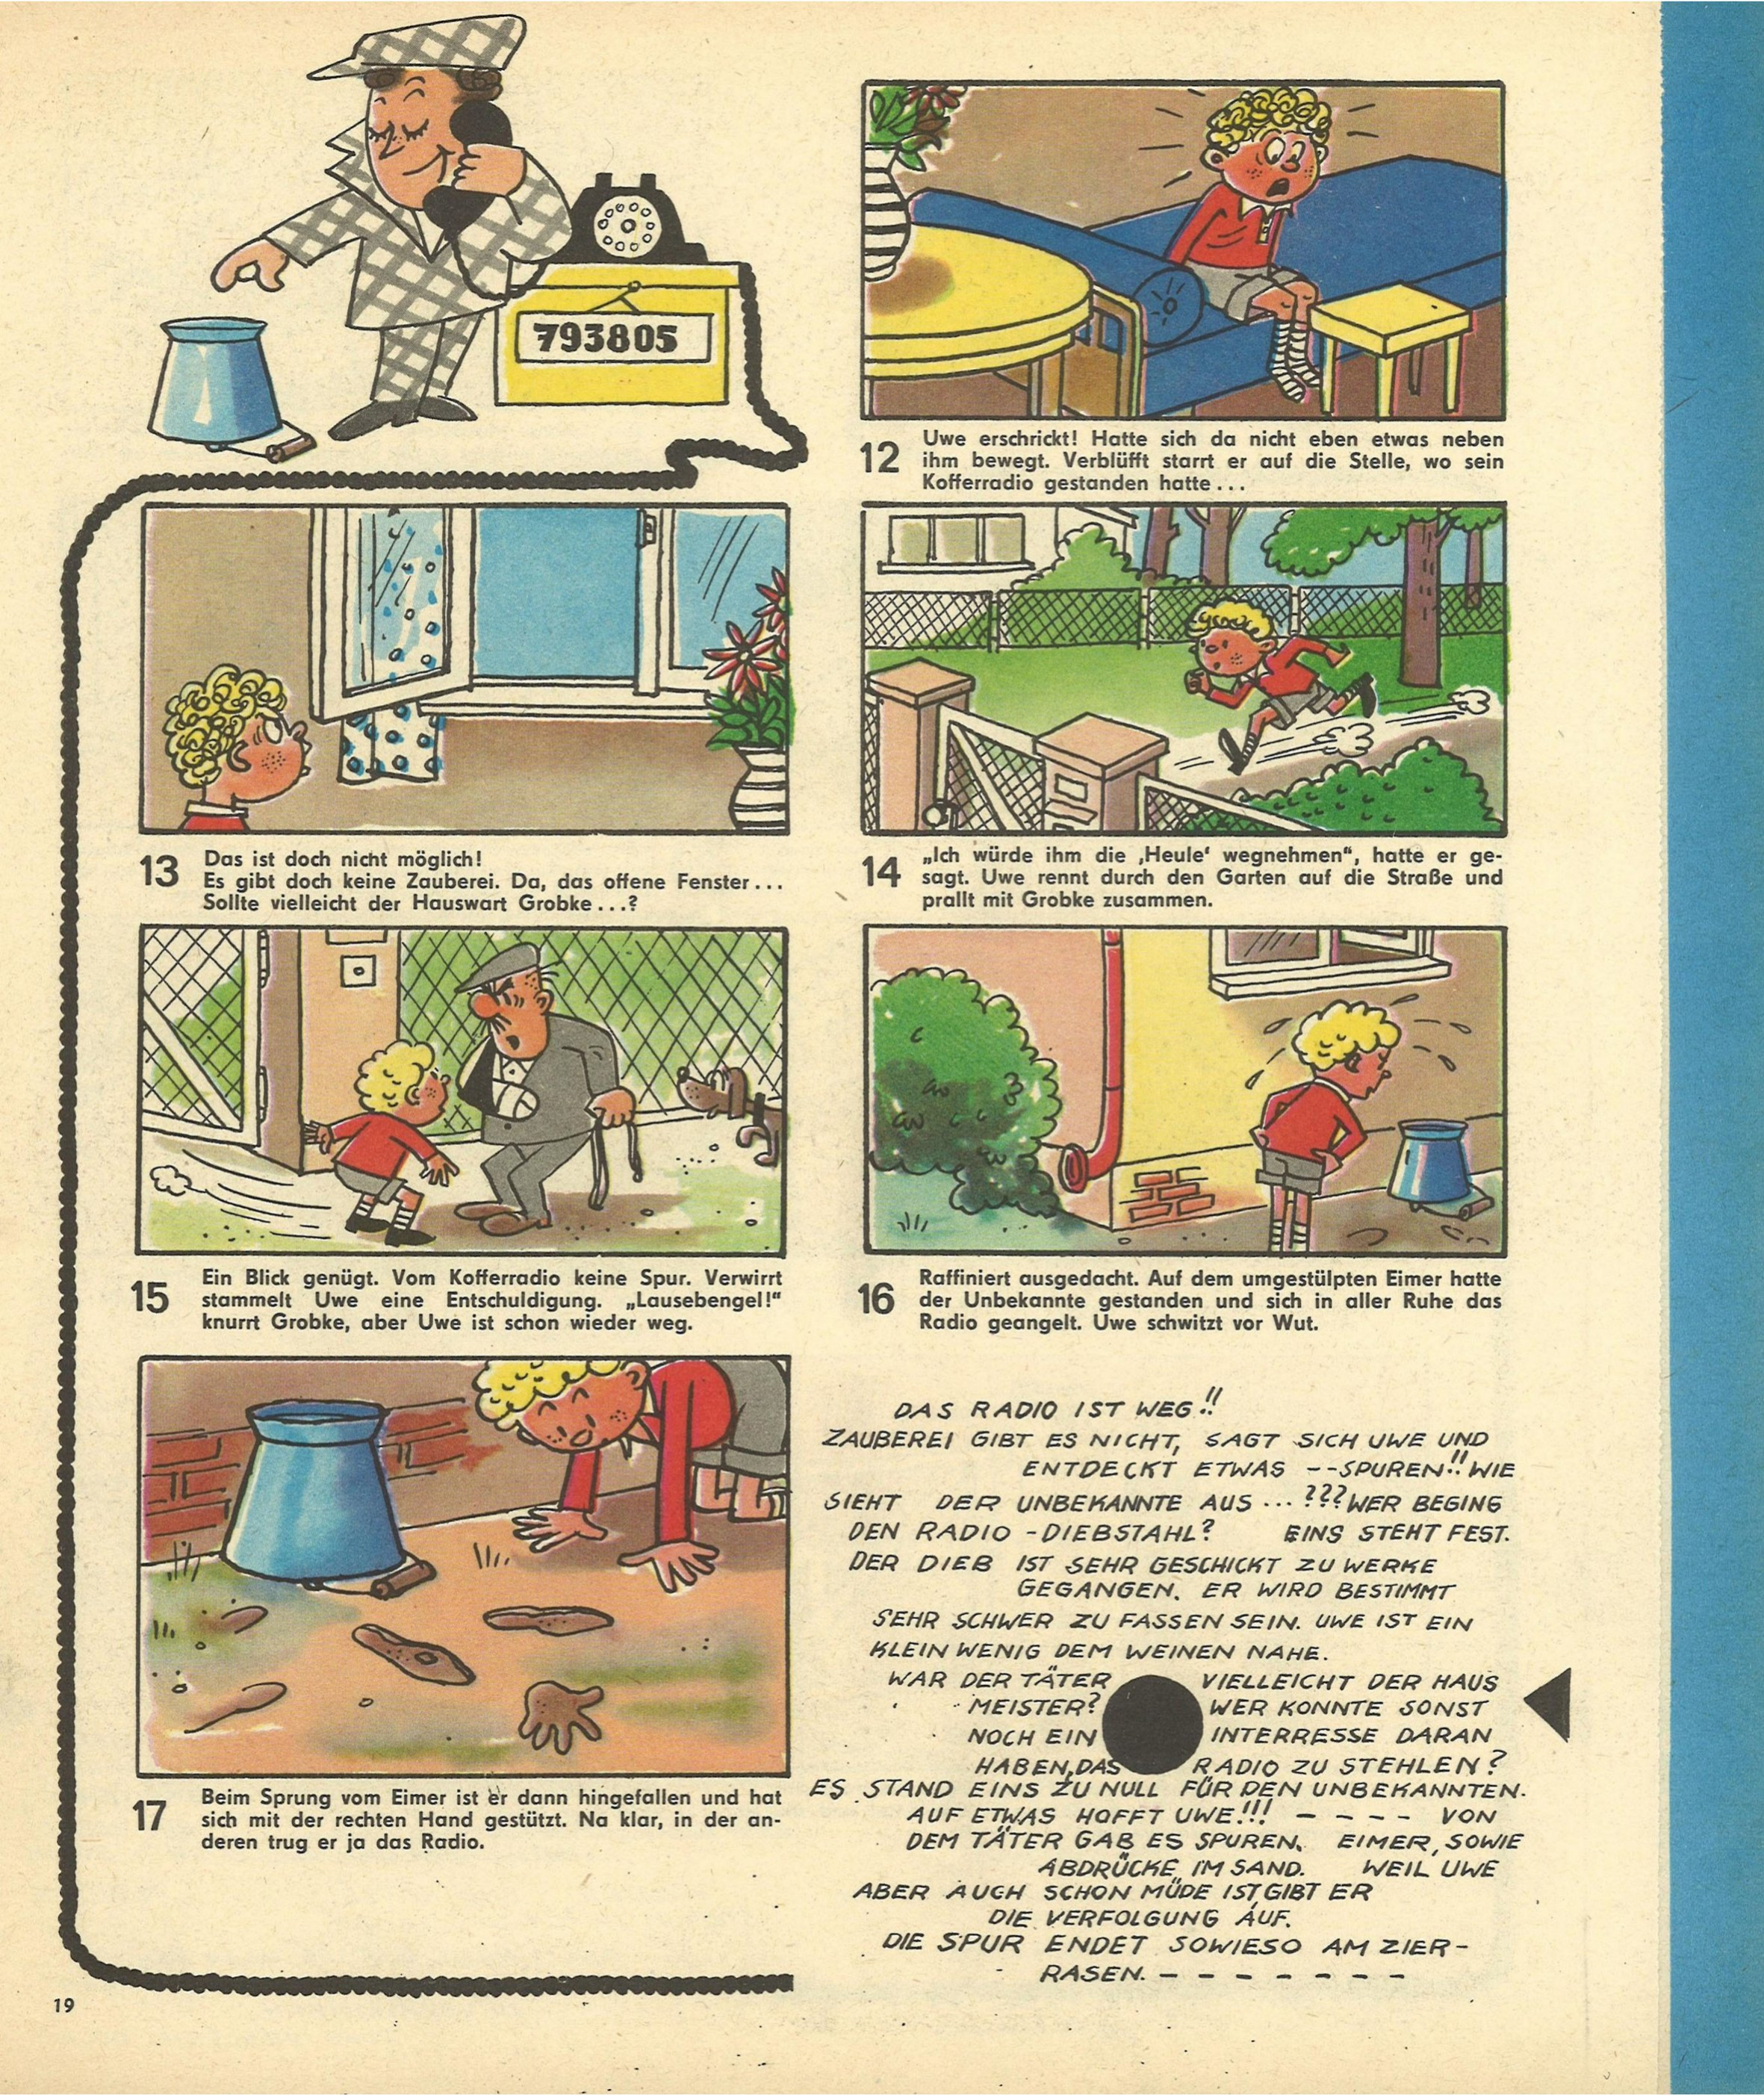 793805
12
Uwe erschrickt! Hatte sich da nicht eben etwas neben
ihm bewegt. Verblüfft starrt er auf die Stelle, wo sein
Kofferradio gestanden hatte...
13
Das ist doch nicht möglich!
Es gibt doch keine Zauberei. Da, das offene Fenster...
Sollte vielleicht der Hauswart Grobke...?
14
„Ich würde ihm die ‚Heule‘ wegnehmen“, hatte er ge-
sagt. Uwe rennt durch den Garten auf die Straße und
prallt mit Grobke zusammen.
15
Ein Blick genügt. Vom Kofferradio keine Spur. Verwirrt
stammelt Uwe eine Entschuldigung. „Lausebengel!“
knurrt Grobke, aber Uwe ist schon wieder weg.
16
Raffiniert ausgedacht. Auf dem umgestülpten Eimer hatte
der Unbekannte gestanden und sich in aller Ruhe das
Radio geangelt. Uwe schwitzt vor Wut.
17
Beim Sprung vom Eimer ist er dann hingefallen und hat
sich mit der rechten Hand gestützt. Na klar, in der an-
deren trug er ja das Radio.
DAS RADIO IST WEG!!
ZAUBEREI GIBT ES NICHT, SAGT SICH UWE UND
ENTDECKT ETWAS --SPUREN!! WIE
SIEHT DER UNBEKANNTE AUS ... ??? WER BEGING
DEN RADIO - DIEBSTAHL? EINS STEHT FEST.
DER DIEB IST SEHR GESCHICKT ZU WERKE
GEGANGEN. ER WIRD BESTIMMT
SEHR SCHWER ZU FASSEN SEIN. UWE IST EIN
KLEIN WENIG DEM WEINEN NAHE.
WAR DER TÄTER VIELLEICHT DER HAUS
MEISTER? WER KONNTE SONST
NOCH EIN INTERRESSE DARAN
HABEN, DAS RADIO ZU STEHLEN?
ES STAND EINS ZU NULL FÜR DEN UNBEKANNTEN.
AUF ETWAS HOFFT UWE!!! - - - - VON
DEM TÄTER GAB ES SPUREN. EIMER, SOWIE
ABDRÜCKE IM SAND. WEIL UWE
ABER AUCH SCHON MÜDE IST, GIBT ER
DIE VERFOLGUNG AUF.
DIE SPUR ENDET SOWIESO AM ZIER-
RASEN. - - - - - - -
19